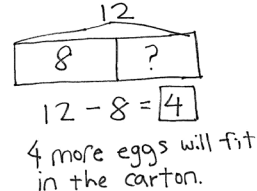 12
8 ?
12 - 8 = 4
4 more eggs will fit
in the carton.